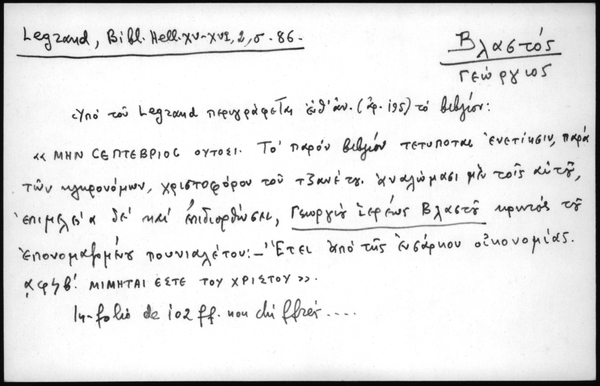 Legrand, Bibl. Hell. XV-XVI, 2, σ. 86.
Βλαστός
Γεώργιος
Ὑπὸ τοῦ Legrand περιγράφεται (ἀρ. 195) τὸ βιβλίον:
« ΜΗΝ ΣΕΠΤΕΒΡΙΟΣ ΟΥΤΟΣΙ. Τὸ παρὸν βιβλίον τέτυπται ἐνετίησιν, παρὰ
τῶν κληρονόμων, χριστοφόρου τοῦ τζανέτου. ἀναλώμασι μὲν τοῖς αὐτοῦ,
ἐπιμελείᾳ δὲ καὶ ἐπιδιορθώσει, Γεωργίου ἱερέως Βλαστοῦ κρητὸς τοῦ
ἐπονομαζομένου πουνιαλέτου:- Ἔτει ἀπὸ τῆς ἐνσάρκου οἰκονομίας.
͵αφϟβ΄. ΜΙΜΗΤΑΙ ΕΣΤΕ ΤΟΥ ΧΡΙΣΤΟΥ ».
In-folio de 102 ff. non chiffrés....